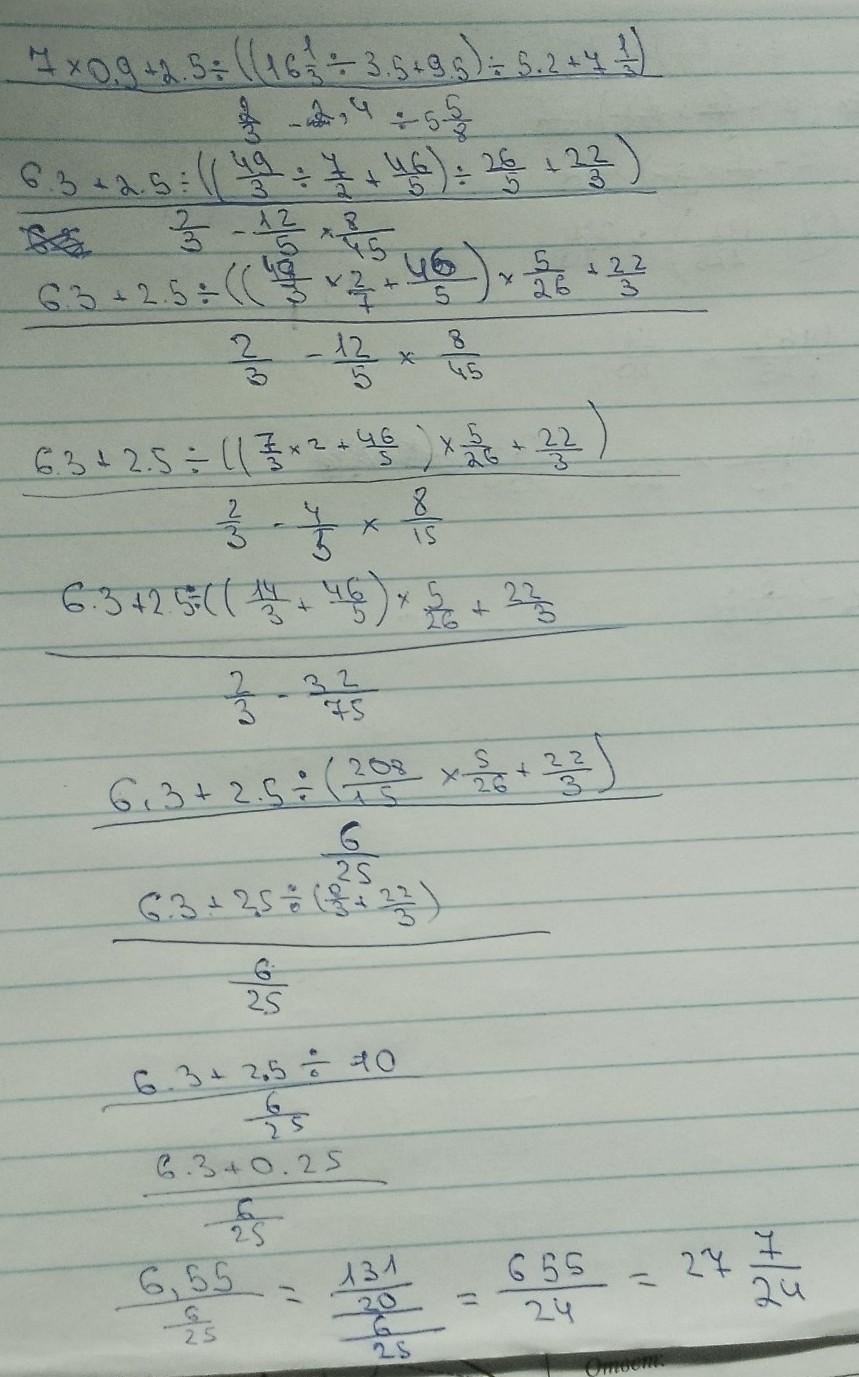 7×0.9+2.5÷((16 1/3÷3.5+9.5)÷5.2+7 1/3)
2/3 - 2,4 ÷5 5/8
6.3+2.5÷((49/3÷7/2+46/5)÷26/5+22/3)
2/3 - 12/5 × 8/45
6.3+2.5÷((49/3×2/7+46/5)×5/26+22/3
2/3 - 12/5 × 8/45
6.3+2.5÷((7/3×2+46/5)×5/26+22/3)
2/3 - 4/5 × 8/15
6.3+2.5÷((14/3+46/5)×5/26+22/3
2/3 - 32/75
6,3+2.5÷(208/15×5/26+22/3)
6/25
6.3+2,5÷(8/3+22/3)
6/25
6.3+2,5÷10
6/25
6.3+0.25
6/25
6,55 / 6/25 = 131/20 / 6/25 = 655/24 = 27 7/24
Ответ: